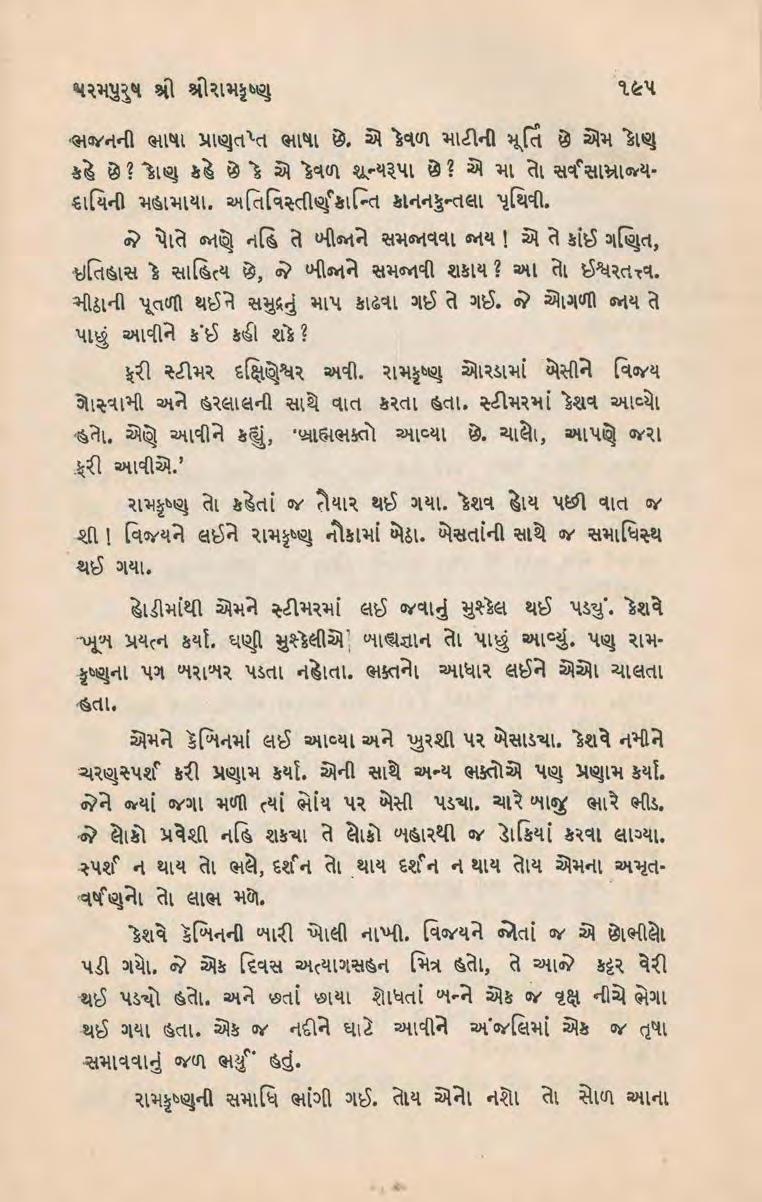 પરમપુરુષ શ્રી શ્રીરામકૃષ્ણ ૧૯૫
ભજનની ભાષા પ્રાણતપ્ત ભાષા છે. એ કેવળ માટીની મૂર્તિ છે એમ કોણ
કહે છે? કોણ કહે છે કે એ કેવળ શૂન્યરૂપા છે? એ મા તો સર્વસામ્રાજ્ય-
દાયિની મહામાયા. અતિવિસ્તીર્ણકાન્તિ કાનનકુન્તલા પૃથિવી.
જે પોતે જાણે નહિ તે બીજાને સમજાવવા જાય! એ તે કાંઈ ગણિત,
ઇતિહાસ કે સાહિત્ય છે, જે બીજાને સમજાવી શકાય? આ તો ઈશ્વરતત્ત્વ.
મીઠાની પૂતળી થઈને સમુદ્રનું માપ કાઢવા ગઈ તે ગઈ. જે ઓગળી જાય તે
પાછું આવીને કંઈ કહી શકે?
ફરી સ્ટીમર દક્ષિણેશ્વર અવી. રામકૃષ્ણ ઓરડામાં બેસીને વિજય
ગોસ્વામી અને હરલાલની સાથે વાત કરતા હતા. સ્ટીમરમાં કેશવ આવ્યો
હતો. એણે આવીને કહ્યું, ‘બ્રાહ્મભક્તો આવ્યા છે. ચાલો, આપણે જરા
ફરી આવીએ.’
રામકૃષ્ણ તો કહેતાં જ તૈયાર થઈ ગયા. કેશવ હોય પછી વાત જ
શી! વિજયને લઈને રામકૃષ્ણ નૌકામાં બેઠા. બેસતાંની સાથે જ સમાધિસ્થ
થઈ ગયા.
હોડીમાંથી એમને સ્ટીમરમાં લઈ જવાનું મુશ્કેલ થઈ પડ્યું. કેશવે
ખૂબ પ્રયત્ન કર્યા. ઘણી મુશ્કેલીએ બાહ્યજ્ઞાન તો પાછું આવ્યું. પણ રામ-
કૃષ્ણના પગ બરાબર પડતા નહોતા. ભક્તનો આધાર લઈને એઓ ચાલતા
હતા.
એમને કેબિનમાં લઈ આવ્યા અને ખુરશી પર બેસાડ્યા. કેશવે નમીને
ચરણસ્પર્શ કરી પ્રણામ કર્યા. એની સાથે અન્ય ભક્તોએ પણ પ્રણામ કર્યા.
જેને જ્યાં જગા મળી ત્યાં ભોંય પર બેસી પડ્યા. ચારે બાજુ ભારે ભીડ.
જે લોકો પ્રવેશી નહિ શક્યા તે લોકો બહારથી જ ડોકિયાં કરવા લાગ્યા.
સ્પર્શ ન થાય તો ભલે, દર્શન તો થાય દર્શન ન થાય તોય એમના અમૃત-
વર્ષણનો તો લાભ મળે.
કેશવે કેબિનની બારી ખોલી નાખી. વિજયને જોતાં જ એ છોભીલો
પડી ગયો. જે એક દિવસ અત્યાગસહન મિત્ર હતો, તે આજે કટ્ટર વેરી
થઈ પડ્યો હતો. અને છતાં છાયા શોધતાં બન્ને એક જ વૃક્ષ નીચે ભેગા
થઈ ગયા હતા. એક જ નદીને ઘાટે આવીને અંજલિમાં એક જ તૃષા
સમાવવાનું જળ ભર્યું હતું.
રામકૃષ્ણની સમાધિ ભાંગી ગઈ. તોય એનો નશો તો સોળ આના